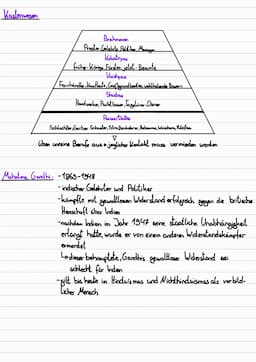 Kastenwesen
Brahmanen
Priester, Gelehrte, Politiker, Manager
Kshatriyas
früher: Könige, Fürsten, jetzt: Beamte
Vaishyas
Kaufleute, Großgrundbesitzer, wohlhabende Bauern
Shudras
Handwerker, Pachtbauer, Tagelöhner, Diener
Parias/Dalits
Schlachter, Gerber,
üben unreine Berufe aus → jeglicher Kontakt muss vermieden werden
Mahatma Gandhi: - 1869-1948
- indischer Gelehrter und Politiker
- kämpfte mit gewaltlosem Widerstand erfolgreich gegen die britische
Herrschaft über Indien
- nachdem Indien im Jahr 1947 seine staatliche Unabhängigkeit
erlangt hatte, wurde er von einem anderen Widerstandskämpfer
ermordet
↳ dieser behauptete, Gandhis gewaltloser Widerstand sei
schlecht für Indien
- gilt bis heute im Hinduismus und Nichthinduismus als vorbild-
licher Mensch